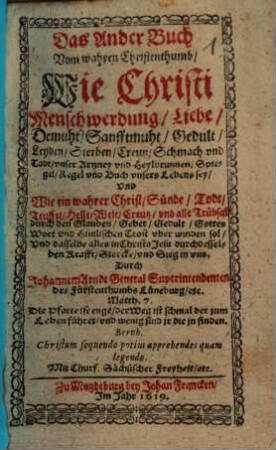 Das Ander Buch
Vom wahren Christenthumb/
Wie Christi
Menschwerdung/ Liebe/
Demuht/ Sanfftmuht/ Gedult/
Leyden/ Sterben/ Creutz/ Schmach vnd
Todt/ vnser Artzney vnd Heylbrunnen/ Spie-
gel/ Regel vnd Buch vnsers Lebens sey/
Vnd
Wie ein wahrer Christ/ Sünde/ Todt/
Teuffel/ Helle/ Welt/ Creutz/ vnd alle Trübsal/
durch den Glauben/ Gebet/ Gedult/ Gottes
Wort vnd Himlischen Trost vberwinden sol/
Vnd dasselbe alles in Christo Jesu durch dessel-
ben Krafft/ Stercke/ vnd Sieg in vns.
Durch
Johannem Arndt General Superintendenten
des Fürstenthumbs Lüneburg/ etc.
Matth. 7.
Die Pforte ist enge/ der Weg ist schmal der zum
Leben führet/ vnd wenig sind jr die jn finden.
Bernh.
Christum sequendo potius apprehendes quam
legendo.
Mit Churf. Sächsischer Freyheit/ etc.
Zu Magdeburg bey Johan Francken/
Im Jahr 1619.